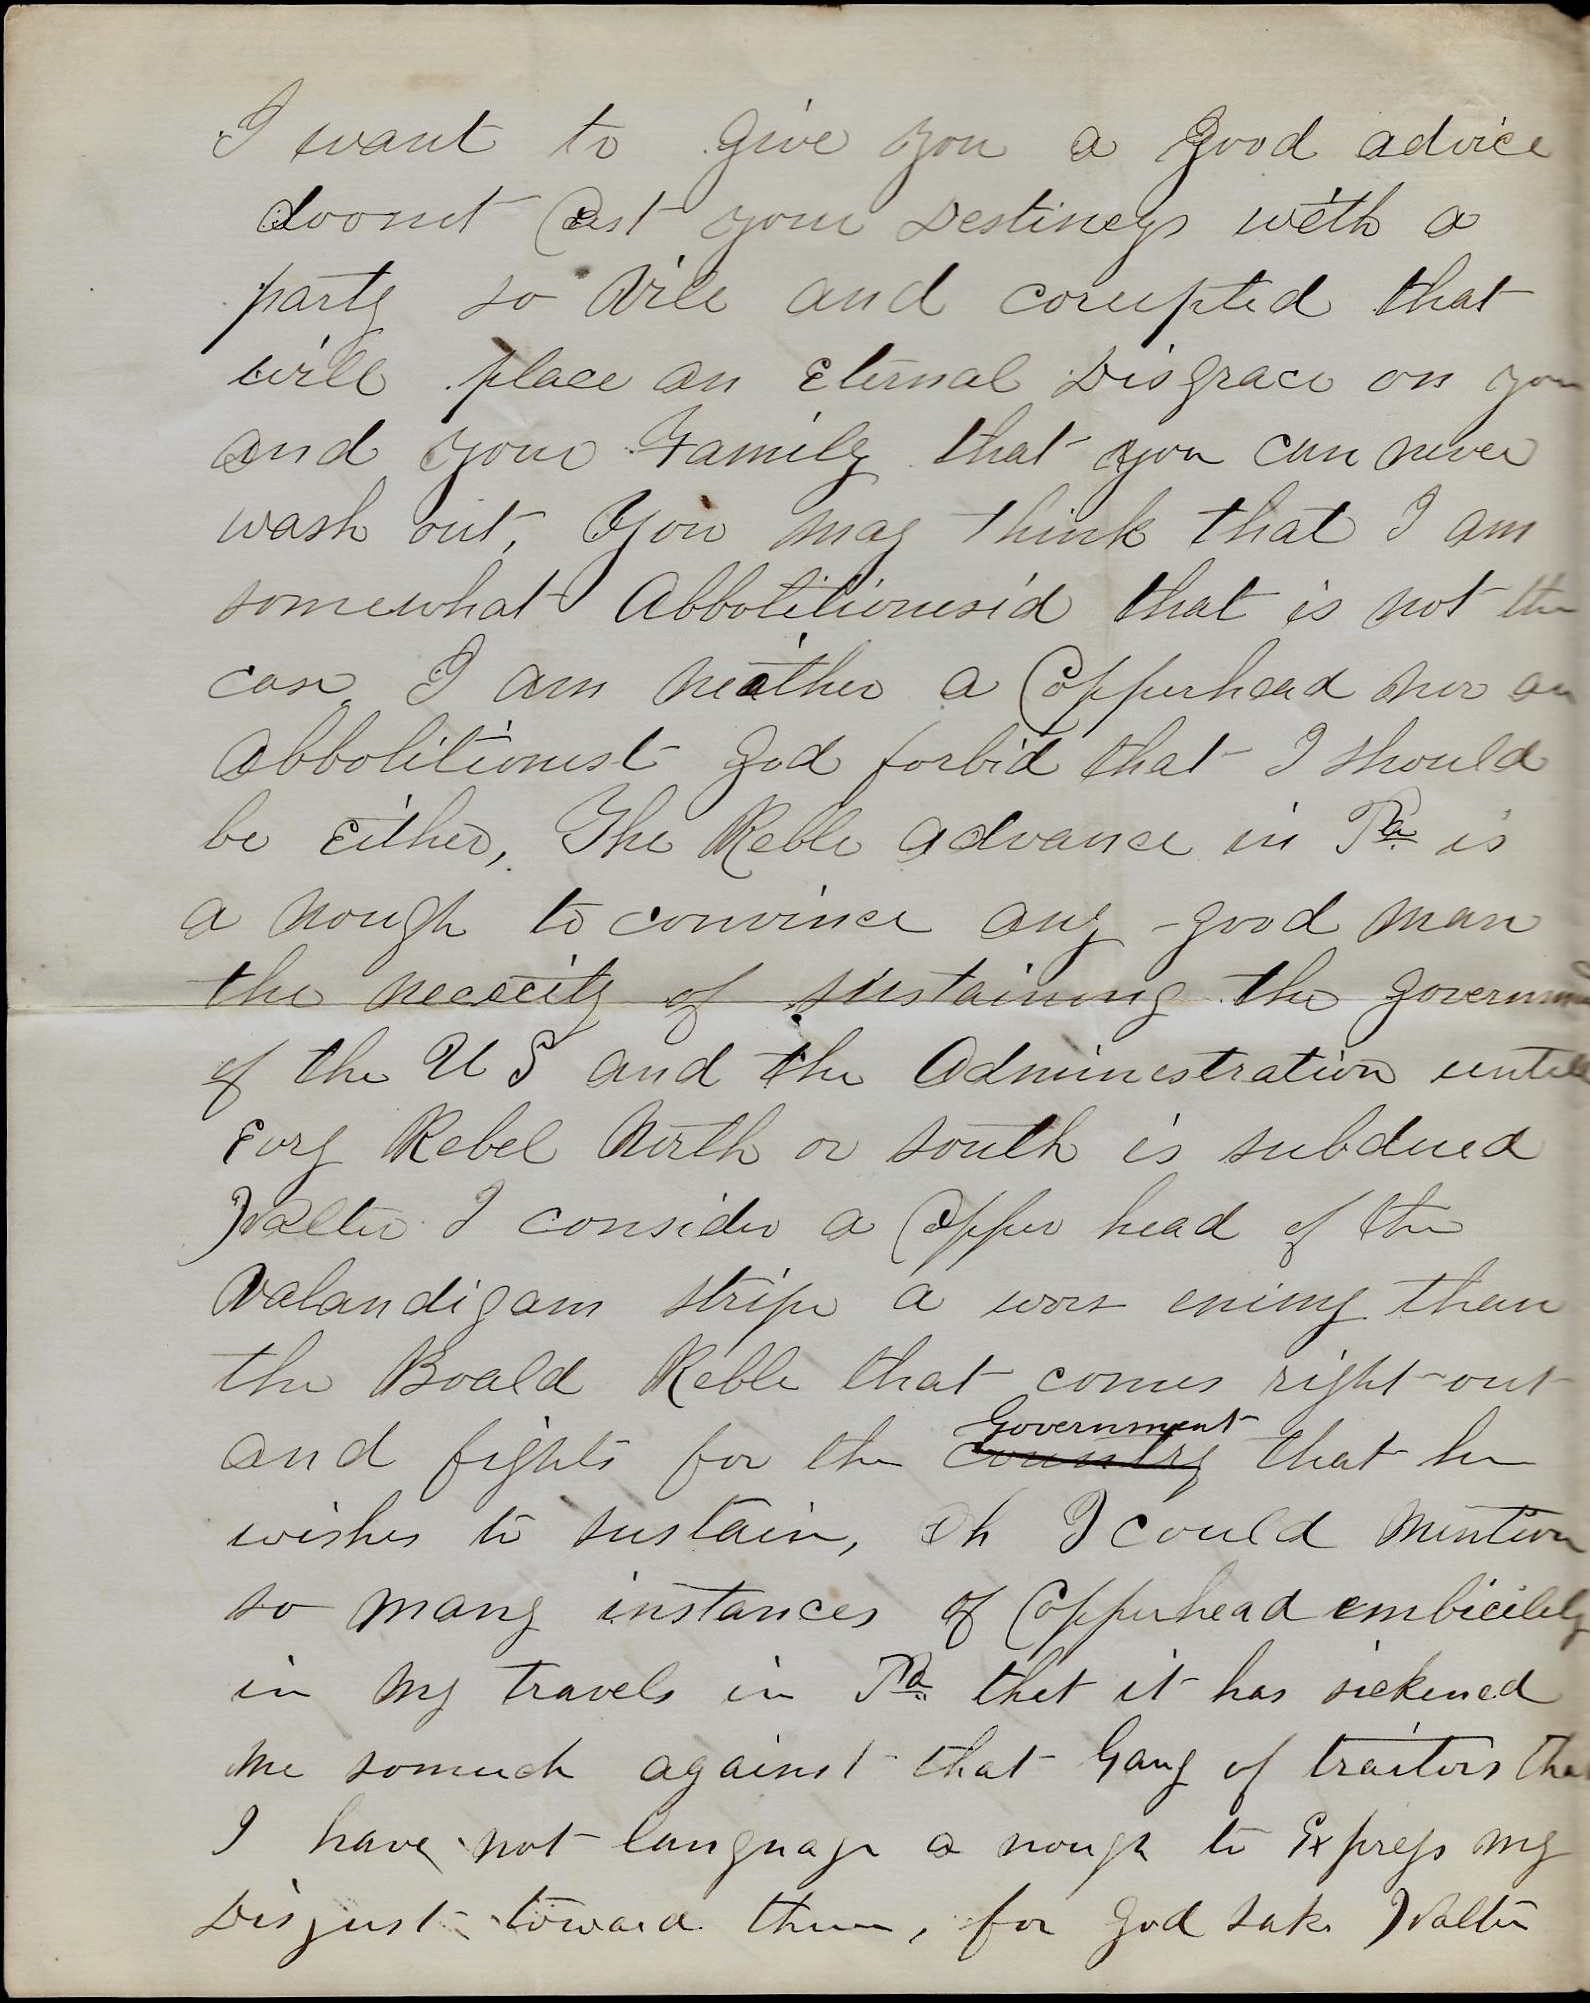 I want to give you a good advice
doount Cast your Destineys with a
party so Vile and corrupted that
will place an Eternal Disgrace on you
and your Family that you can never
wash out, You may think that I am
somewhat Abbolitionesid that is not the
case, I am neather a Copperhead nor an
Abbolitionist God forbid that I should
be Either, The Reble advance in Pa is
a nough to convince any good man
the nececity of sustaining the governm
of the U S and the Administration untill
Evry Rebel North or South is subdued
Walter I consider a Copper head of the
Valandigam stripe a wors enimy than
the Boald Reble that comes right out
and fights for the country Government that he
wishes to sustain, Oh I could mention
so many instances of Copperhead embicilily
in my travels in Pa that it has sickened
me somuch against that Gang of traitors tha
I have not language a nough to Express my
Disgust toward them, for God sake Walter